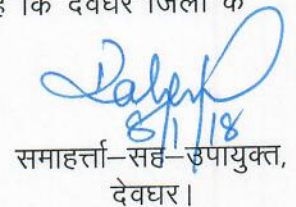 कि देवघर जिला के
8/1/18
समाहर्त्ता–सह–उपायुक्त,
देवघर।